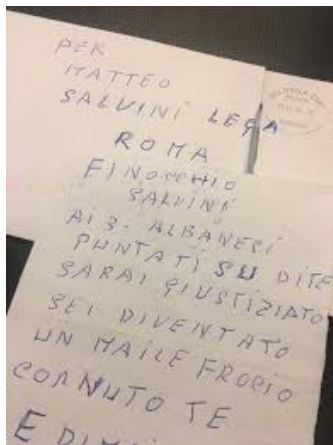 PER
MATTEO
SALVINI LEGA
ROMA
FINOCCHIO
SALVINI
AI 3- ALBANESI
PUNTATI SU DITE
SARAI GIUSTIZIATO
SEI DIVENTATO
UN MAILE FROCIO
CORNUTO TE
E